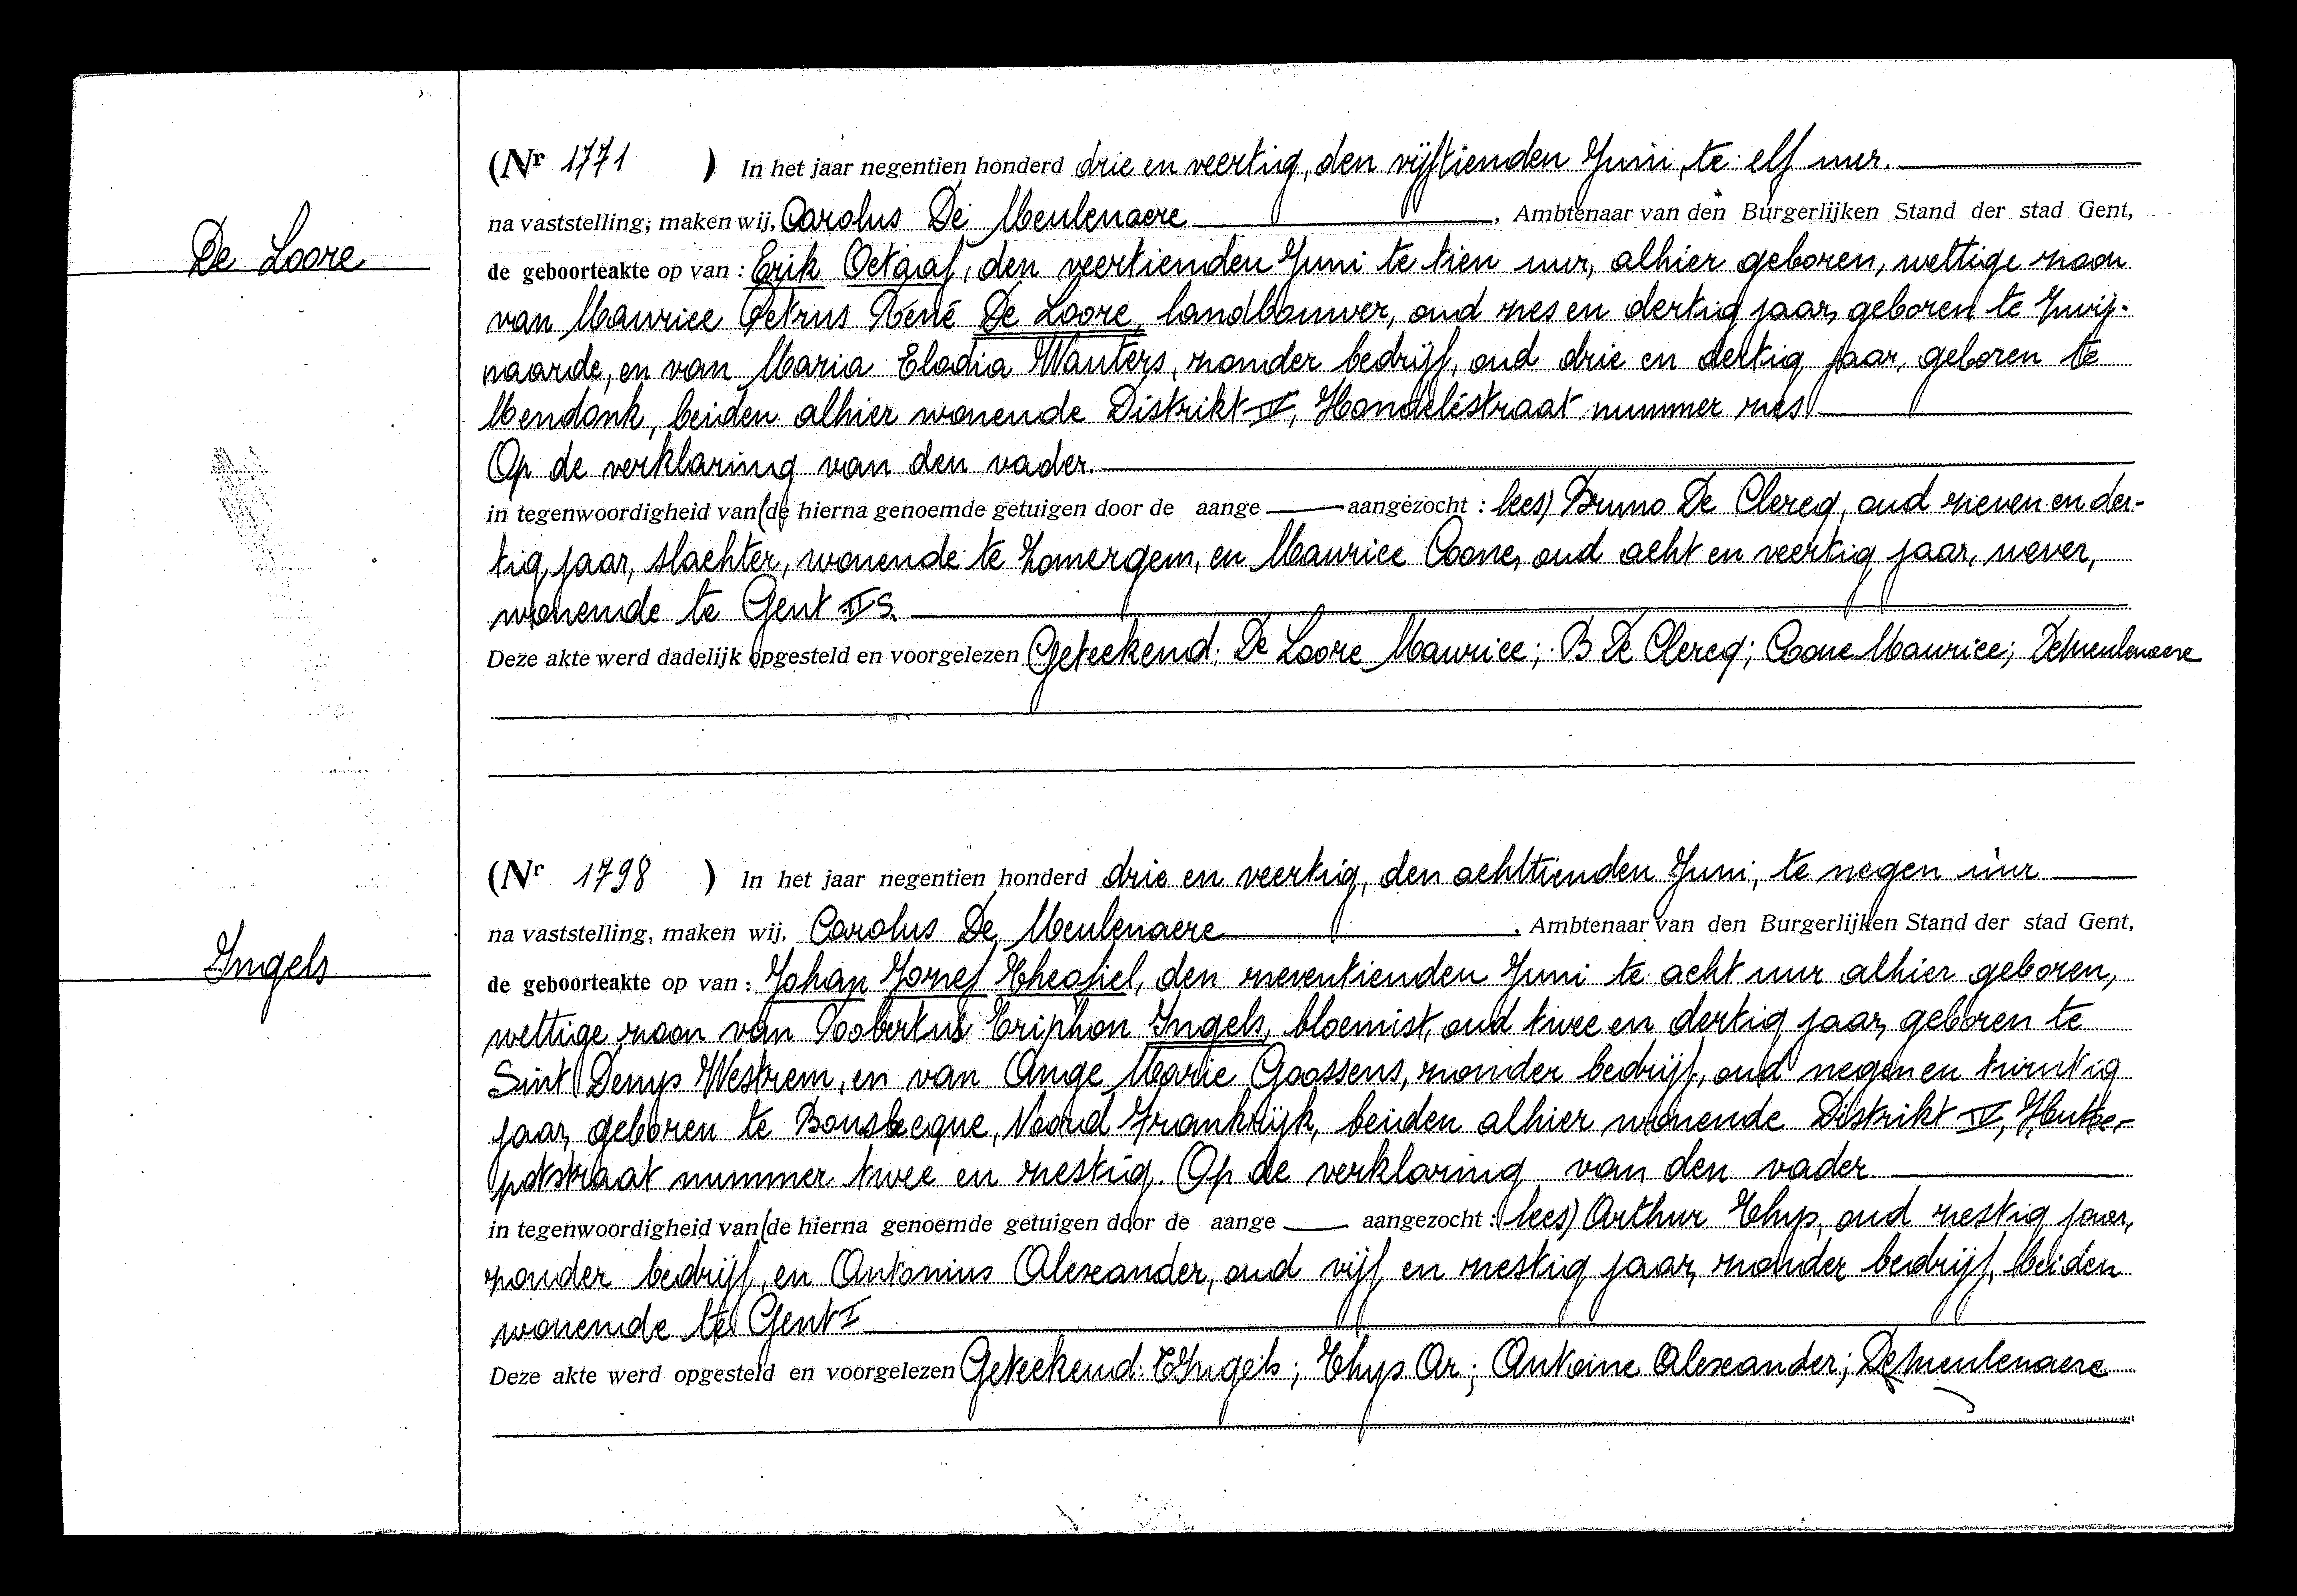 De Loore
(Nr 1771 ) In het jaar negentien honderd drie en veertig, den vijftienden Juni, te elf uur.
na vaststelling, maken wij, Carolus De Meulenaere, Ambtenaar van den Burgerlijken Stand der stad Gent,
de geboorteakte op van : Erik Octaaf, den veertienden Juni te tien uur, alhier geboren, wettige zoon
van Maurice Petrus René De Loore, landbouwer, oud zes en dertig jaar, geboren te Zwij-
naarde, en van Maria Elodia Wauters, zonder bedrijf, oud drie en dertig jaar, geboren te
Mendonk, beiden alhier wonende Distrikt IV, Handelstraat nummer zes
Op de verklaring van den vader.
in tegenwoordigheid van (de hierna genoemde getuigen door de aange aangezocht : lees) Bruno De Clercq, oud zeven en der-
tig jaar, slachter, wonende te Zomergem, en Maurice Coone, oud acht en veertig jaar, wever,
wonende te Gent IIS.
Deze akte werd dadelijk opgesteld en voorgelezen Geteekend: De Loore Maurice; B De Clercq; Coone Maurice; DeMeulenaere
Ingels
(Nr 1798 ) In het jaar negentien honderd drie en veertig, den achttienden Juni, te negen uur
na vaststelling, maken wij, Carolus De Meulenaere, Ambtenaar van den Burgerlijken Stand der stad Gent,
de geboorteakte op van : Johan Jozef Theofiel, den zeventienden Juni te acht uur alhier geboren,
wettige zoon van Robertus Triphon Ingels, bloemist, oud twee en dertig jaar, geboren te
Sint Denys Westrem, en van Ange Marie Goossens, zonder bedrijf, oud negen en twintig
jaar, geboren te Bousbecque, Noord Frankrijk, beiden alhier wonende Distrikt IV, Hutse-
potstraat nummer twee en zestig. Op de verklaring van den vader
in tegenwoordigheid van (de hierna genoemde getuigen door de aange aangezocht : lees) Arthur Thys, oud zestig jaar,
zonder bedrijf, en Antonius Alexander, oud vijf en zestig jaar, zonder bedrijf, beiden
wonende te Gent I
Deze akte werd opgesteld en voorgelezen Geteekend: TIngels; Thys Ar; Antoine Alexander; DeMeulenaere